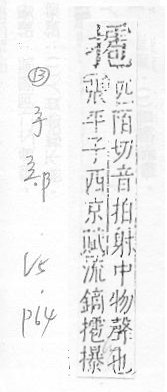 匹陌切音拍射中物聲也
張平子西京賦流鏑㩧
⑬ 手部 V5. p64